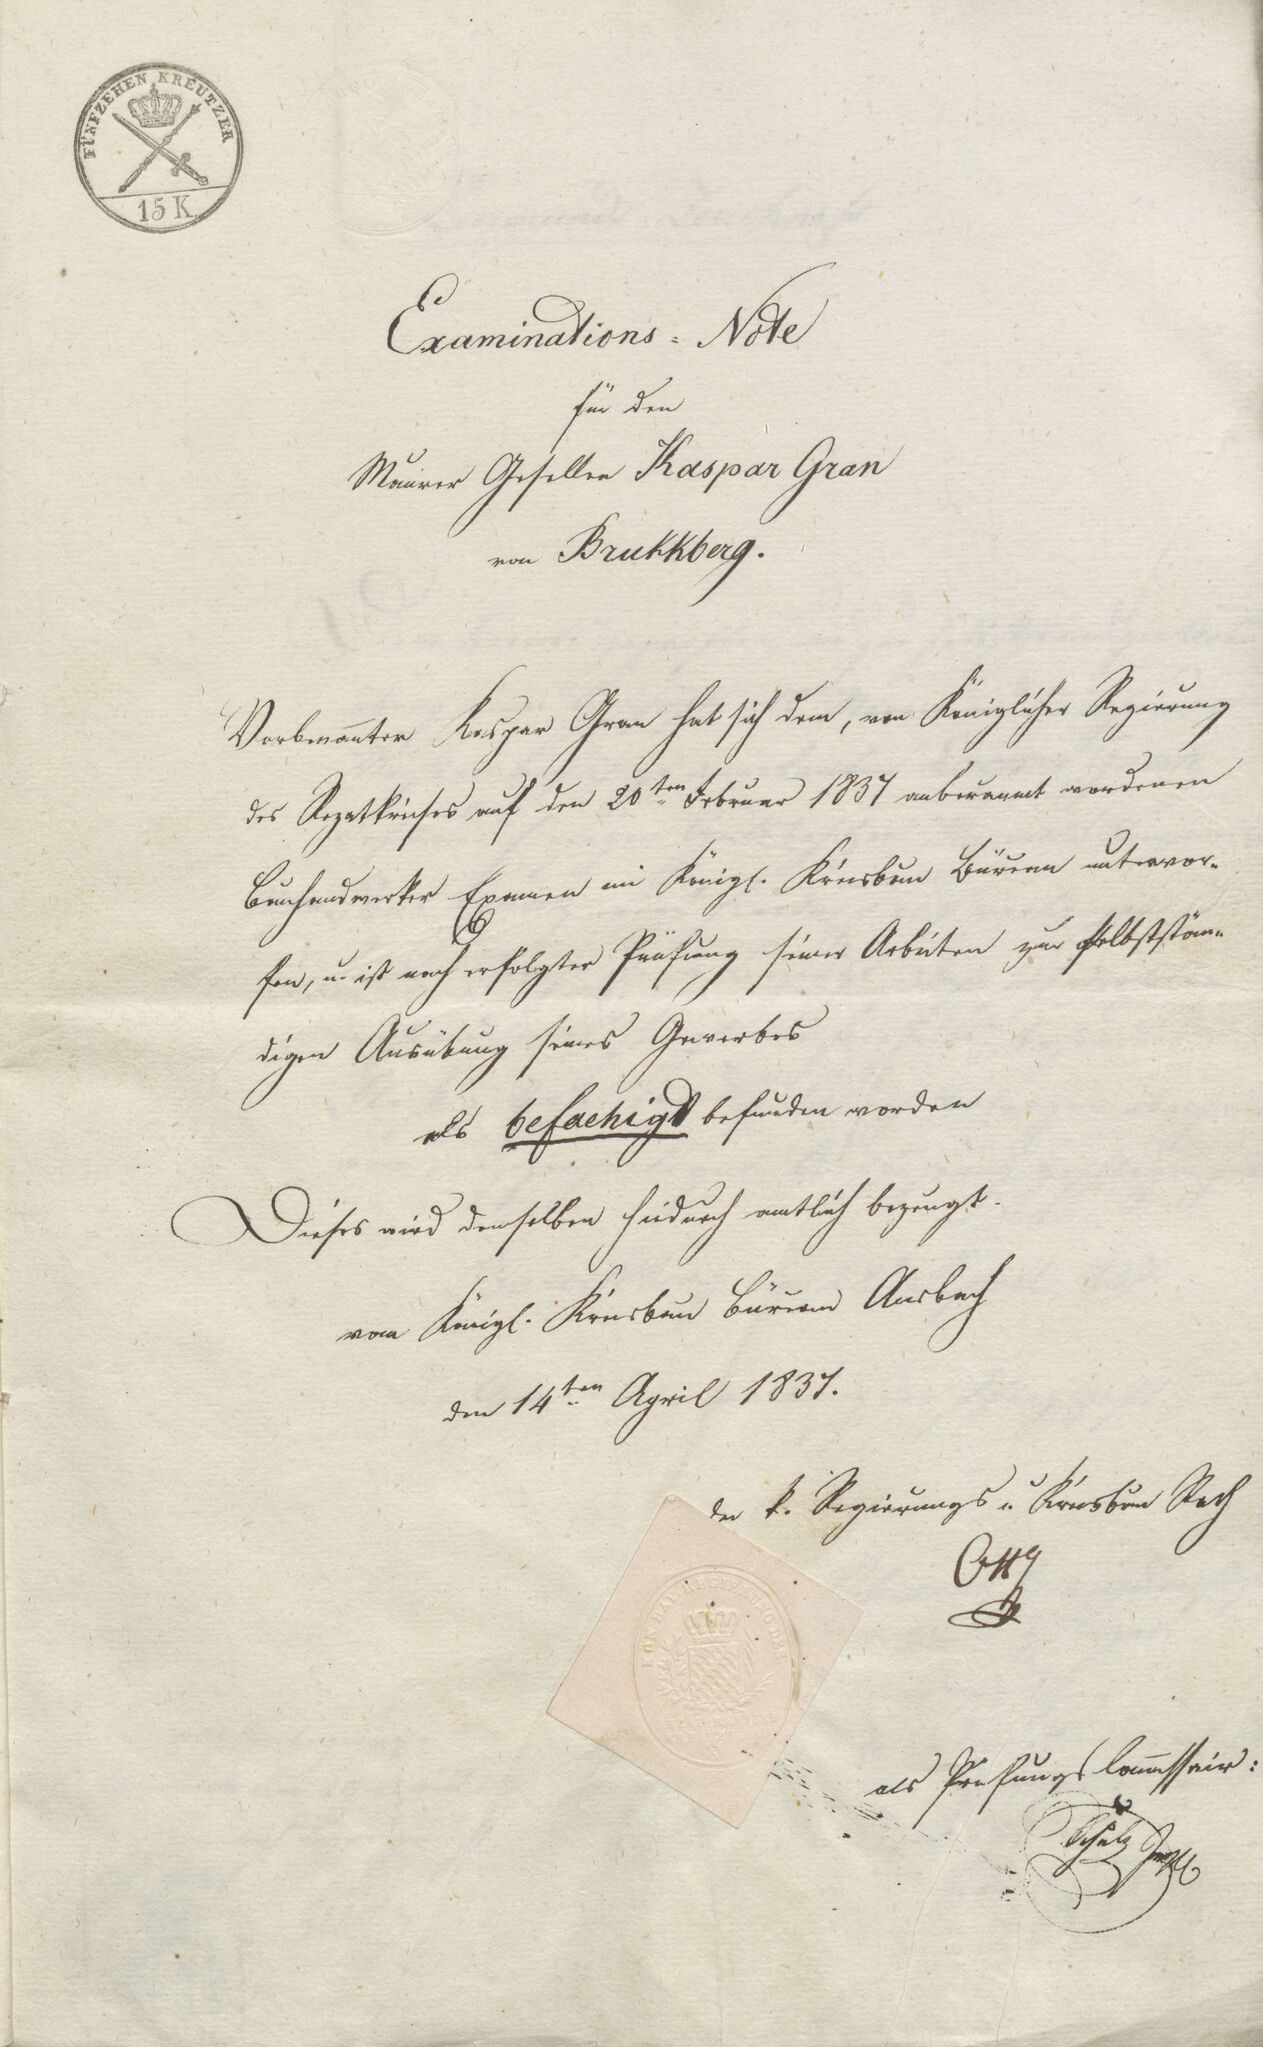 FÜNFZEHEN KREUTZER
15 K.
Examinations-Note
für den
Maurer Gesellen Kaspar Gran
von Brukkberg.
Vorbenannter Kaspar Gran hat sich dem, von Königlicher Regierung
des Rezatkreises auf den 20ten Februar 1837 anberaumt wordenen
Bauhandwerker Examen im Königl. Kreisbau Büreau unterwor-
fen, u. ist nach erfolgter Prüfung seiner Arbeiten zur selbststän-
digen Ausübung seines Gewerbes
als befaehigt befunden worden
Dieses wird demselben hiedurch amtlich bezeugt.
vom Königl. Kreisbau Büreau Ansbach
den 14ten April 1837.
der k. Regierungs u Kreisbau Rath
als Prüfungs Commissair: